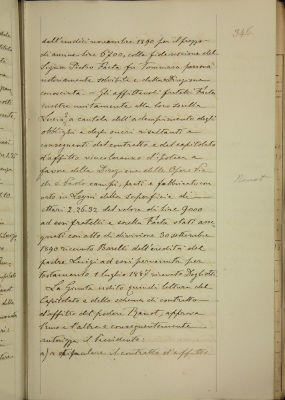 346
dall'undici novembre 1890 per il prezzo
di annue lire 6700, colla fidejussione del
Signor Pietro Facta fu Tommaso persona
notoriamente solvibile e della Direzione
conosciuta. Gli affittavoli fratelli Facta
inoltre unitamente alla loro sorella
Lucia, a cautela dell'adempimento degli
obblighi e degli oneri risultanti e
conseguenti dal contratto e dal capitolato
d'affitto vincolavano d'ipoteca a
favore della Direzione delle Opere Pie
di S. Paolo campi, prati e fabbricati
in Loyni della superficie di
ettari 2.26.32 del valore di lire 9000
ad essi fratelli e sorella Facta stati asse
gnati con atto di divisione 30 settembre
1890 ricevuto Boretti dell'eredità del
padre Luigi ad essi pervenuta per
testamento 1 luglio 1887 ricevuto
La Giunta udito quindi lettura del
Capitolato e dello schema di contratto
d'affitto del podere approva
l'uno e l'altro e conseguentemente
autorizza il Presidente:
a) a stipulare il contratto d'affitto